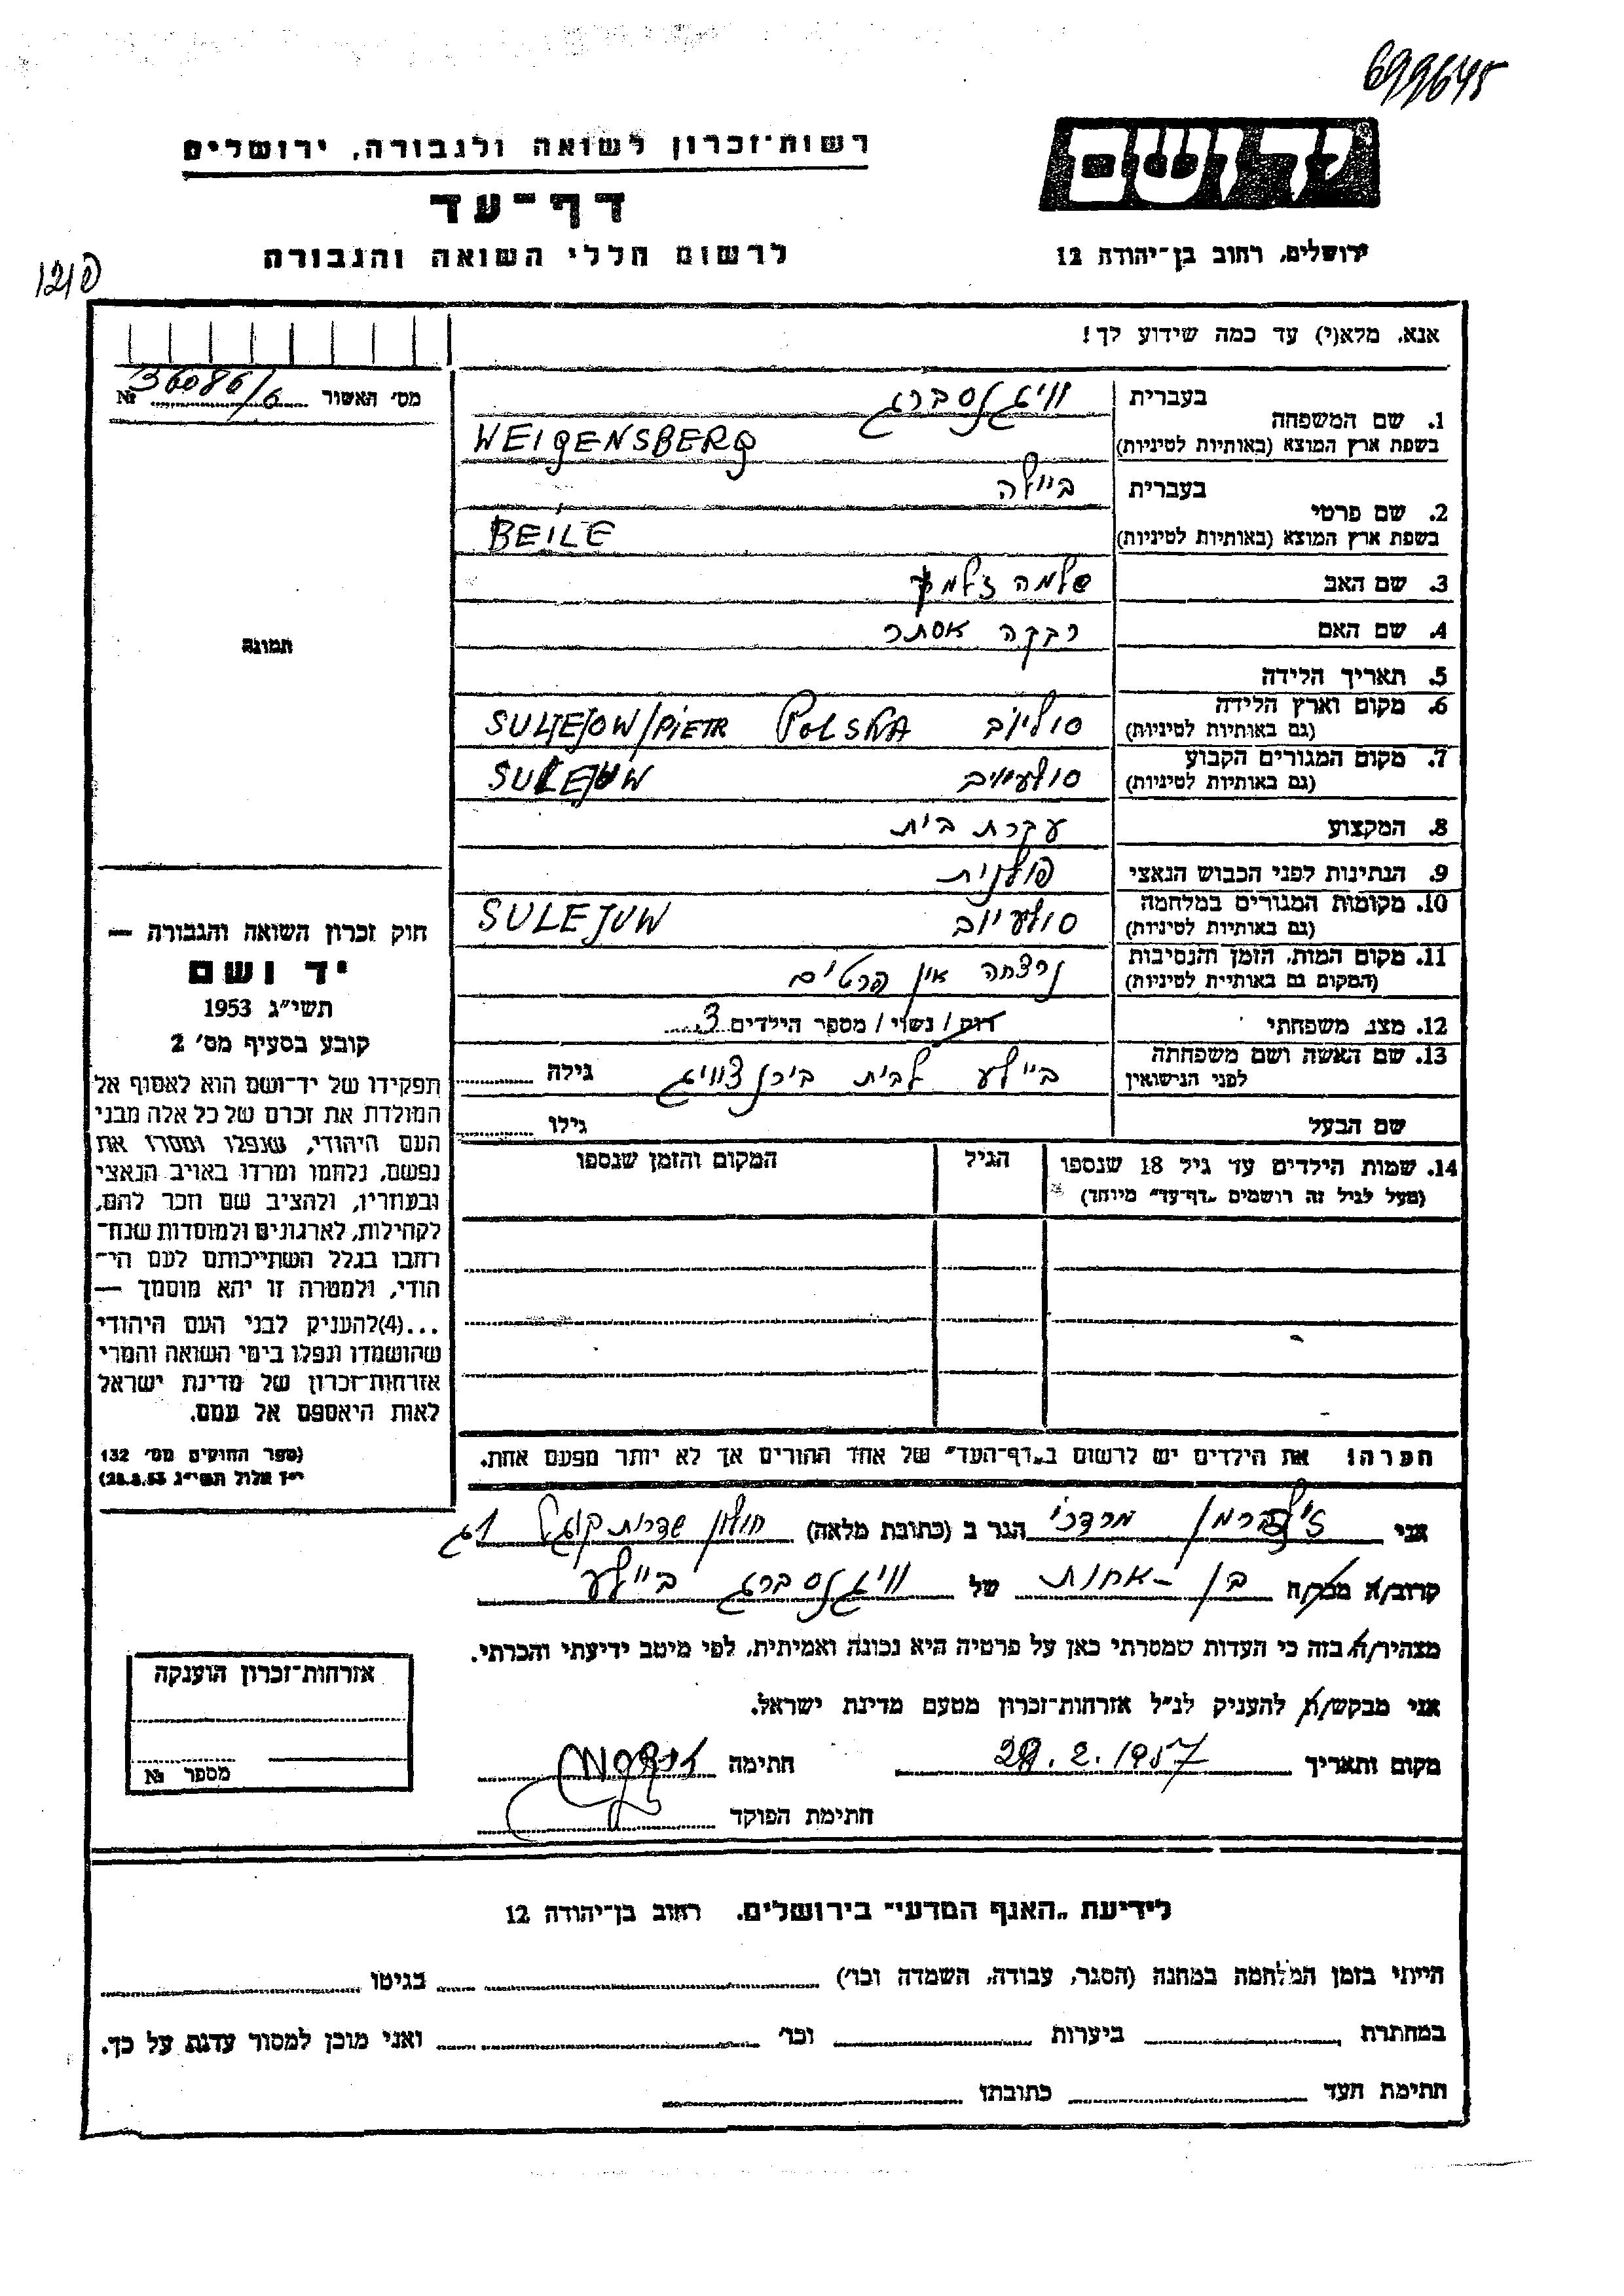 699645
רשות־זכרון לשואה ולגבורה, ירושלים
דף־עד
לרשום חללי השואה והגבורה
יד ושם
ירושלים, רחוב בן־יהודה 12
אנא, מלא(י) עד כמה שידוע לך!
מס' האשור 36086/6 №
1. שם המשפחה
בעברית וויגנסברג
בשפת ארץ המוצא (באותיות לטיניות) WEIGENSBERG
2. שם פרטי
בעברית ביילה
בשפת ארץ המוצא (באותיות לטיניות) BEILE
3. שם האב שלמה זלמן
4. שם האם רבקה אסתר
5. תאריך הלידה
6. מקום וארץ הלידה
(גם באותיות לטיניות) סוליוב POLSKA SULEJOW/PIETR
7. מקום המגורים הקבוע
(גם באותיות לטיניות) סולעיוב SULEJOW
8. המקצוע עקרת בית
9. הנתינות לפני הכבוש הנאצי פולנית
10. מקומות המגורים במלחמה
(גם באותיות לטיניות) סולעיוב SULEJUW
11. מקום המות, הזמן והנסיבות
(המקום גם באותיות לטיניות) נרצחה אין פרטים
12. מצב משפחתי רוק / נשוי / מספר הילדים 3
13. שם האשה ושם משפחתה
לפני הנישואין ביילע לבית בירנצווייג גילה
שם הבעל גילו
14. שמות הילדים עד גיל 18 שנספו
(מעל לגיל זה רושמים „דף־עד" מיוחד)
הגיל
המקום והזמן שנספו
תמונה
חוק זכרון השואה והגבורה —
יד ושם
תשי"ג 1953
קובע בסעיף מס' 2
תפקידו של יד־ושם הוא לאסוף אל
המולדת את זכרם של כל אלה מבני
העם היהודי, שנפלו ומסרו את
נפשם, נלחמו ומרדו באויב הנאצי
ובעוזריו, ולהציב שם וזכר להם,
לקהילות, לארגונים ולמוסדות שנח־
רחבו בגלל השתייכותם לעם הי־
הודי, ולמטרה זו יהא מוסמך —
...(4)להעניק לבני העם היהודי
שהושמדו ונפלו בימי השואה והמרי
אזרחות־זכרון של מדינת ישראל
לאות היאספם אל עמם.
(ספר החוקים מס' 132
י"ז אלול תשי"ג 28.8.53)
הערה! את הילדים יש לרשום ב„דף־העד" של אחד ההורים אך לא יותר מפעם אחת.
אני זילברמן מרדכי הגר ב (כתובת מלאה) חולון שדרות קוגל 1ג
קרוב/ה מכר/ה בן-אחות של וויגנסברג ביילע
מצהיר/ה בזה כי העדות שמסרתי כאן על פרטיה היא נכונה ואמיתית, לפי מיטב ידיעתי והכרתי.
אני מבקש/ת להעניק לנ"ל אזרחות־זכרון מטעם מדינת ישראל.
מקום ותאריך 28.2.1957 חתימה
חתימת הפוקד
אזרחות־זכרון הוענקה
מספר №
לידיעת „האגף המדעי" בירושלים, רחוב בן־יהודה 12
הייתי בזמן המלחמה במחנה (הסגר, עבודה, השמדה וכו') בגיטו
במחתרת ביערות וכו' ואני מוכן למסור עדות על כך.
חתימת העד כתובתו